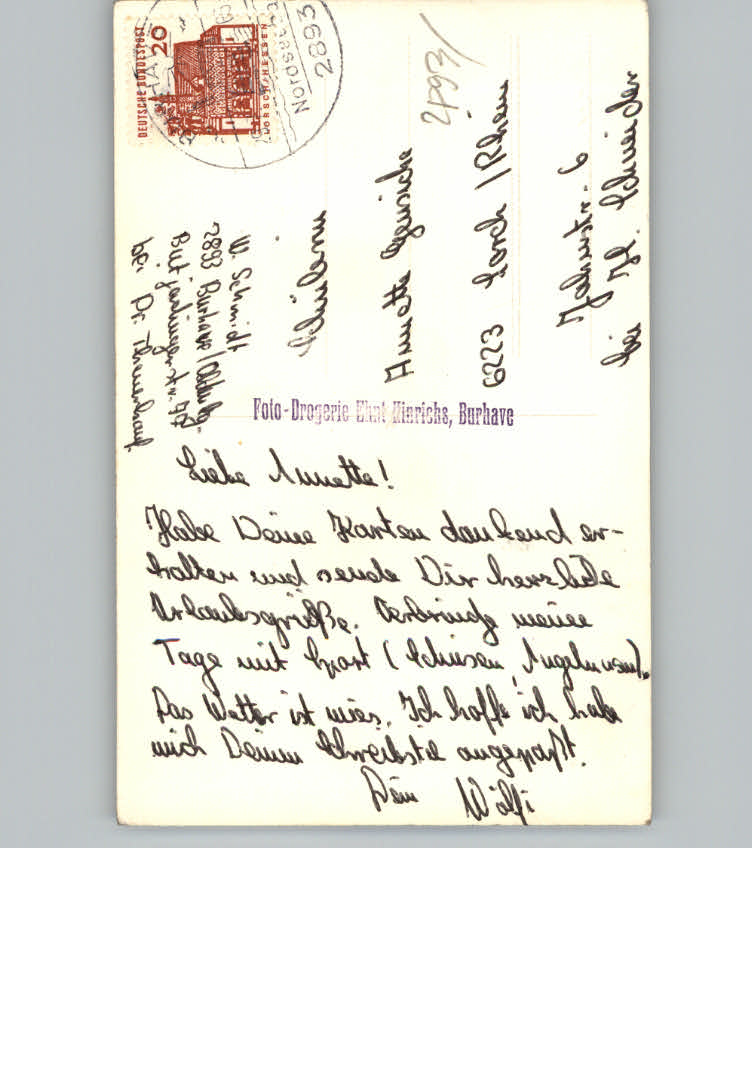 DEUTSCHE BUNDESPOST
20
LORSCH/HESSEN
2893
Nordseeb
2893/
W. Schmidt
2893 Burhave/Oldbg.
Butjadingerstr. 59
bei Dr.
Schülerin
Annette
6223 Lorch/Rhein
Jahnstr. 6
bei H. Schneider
Foto-Drogerie Hinrichs, Burhave
Liebe Annette!
Habe Deine Karten dankend er-
halten und sende Dir herzliche
Urlaubsgrüße. Verbringe meine
Tage mit Sport (Schiessen, Angeln usw).
Das Wetter ist mies. Ich hoffe ich habe
mich Deinem Schreibstil angepaßt.
Dein Wölfi